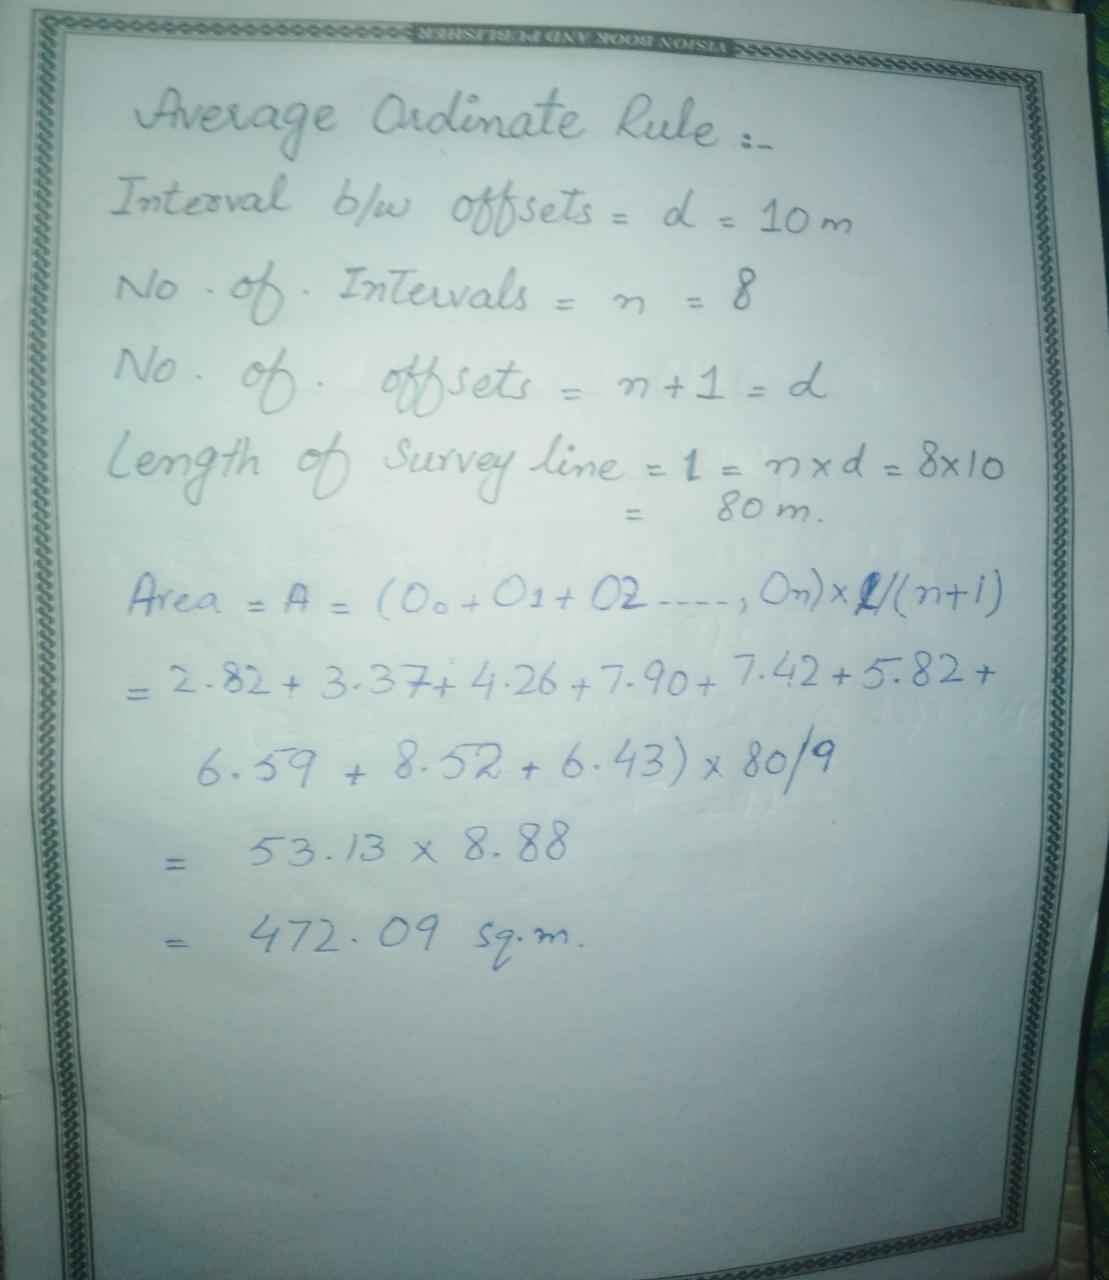 VISION BOOK AND PUBLISHER
Average Ordinate Rule :-
Interval b/w offsets = d = 10 m
No . of . Intervals = n = 8
No . of . offsets = n + 1 = d
Length of Survey line = 1 = n x d = 8x10
= 80 m.
Area = A = (O0 + O1 + O2 ----, On) x l/(n+1)
= 2.82 + 3.37 + 4.26 + 7.90 + 7.42 + 5.82 +
6.59 + 8.52 + 6.43) x 80/9
= 53.13 x 8.88
= 472.09 sq.m.